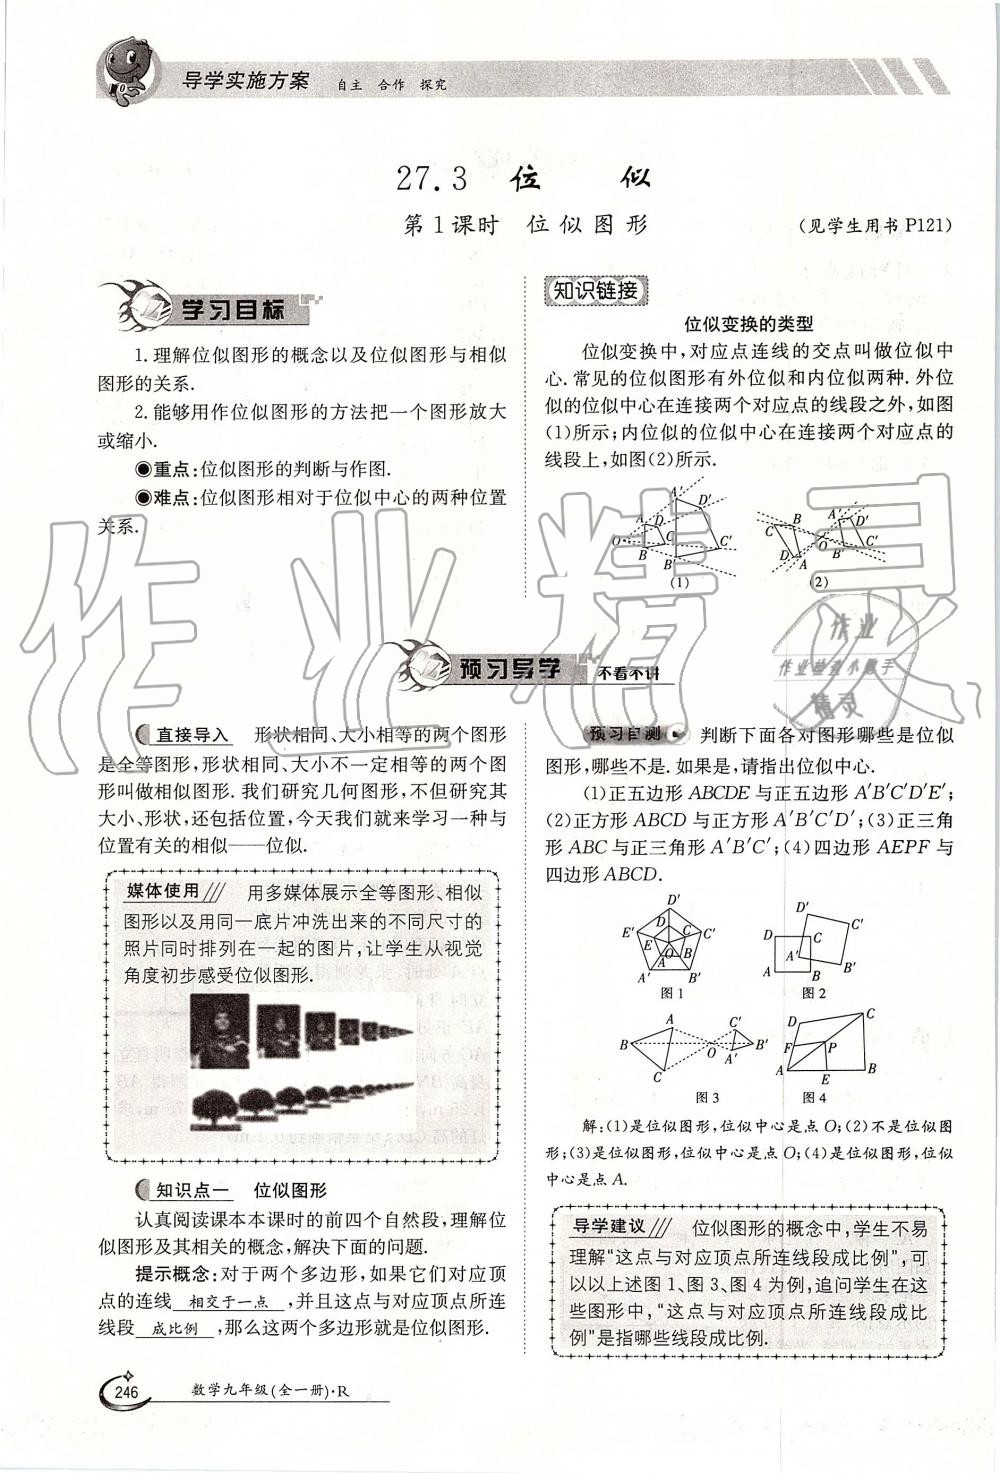 导学实施方案 自主 合作 探究
27.3 位 似
第1课时 位似图形
(见学生用书P121)
学习目标
1.理解位似图形的概念以及位似图形与相似
图形的关系.
2.能够用作位似图形的方法把一个图形放大
或缩小.
◉重点:位似图形的判断与作图.
◉难点:位似图形相对于位似中心的两种位置
关系.
知识链接
位似变换的类型
位似变换中,对应点连线的交点叫做位似中
心.常见的位似图形有外位似和内位似两种.外位
似的位似中心在连接两个对应点的线段之外,如图
(1)所示;内位似的位似中心在连接两个对应点的
线段上,如图(2)所示.
A′ D′ A D O C C′ B B′
(1)
C B A′ D′ O D A B′ C′
(2)
预习导学 不看不讲
直接导入 形状相同、大小相等的两个图形
是全等图形,形状相同、大小不一定相等的两个图
形叫做相似图形.我们研究几何图形,不但研究其
大小、形状,还包括位置,今天我们就来学习一种与
位置有关的相似——位似.
媒体使用 用多媒体展示全等图形、相似
图形以及用同一底片冲洗出来的不同尺寸的
照片同时排列在一起的图片,让学生从视觉
角度初步感受位似图形.
知识点一 位似图形
认真阅读课本本课时的前四个自然段,理解位
似图形及其相关的概念,解决下面的问题.
提示概念:对于两个多边形,如果它们对应顶
点的连线 相交于一点 ,并且这点与对应顶点所连
线段 成比例 ,那么这两个多边形就是位似图形.
预习自测 判断下面各对图形哪些是位似
图形,哪些不是.如果是,请指出位似中心.
(1)正五边形ABCDE与正五边形A′B′C′D′E′;
(2)正方形ABCD与正方形A′B′C′D′;(3)正三角
形ABC与正三角形A′B′C′;(4)四边形AEPF与
四边形ABCD.
D′ E′ D C C′ E O B A A′ B′
图1
D′ C′ D C A′ A B B′
图2
A C′ B O B′ A′ C
图3
C D F P A E B
图4
解:(1)是位似图形,位似中心是点O;(2)不是位似图
形;(3)是位似图形,位似中心是点O;(4)是位似图形,位似
中心是点A.
导学建议 位似图形的概念中,学生不易
理解“这点与对应顶点所连线段成比例”,可
以以上述图1、图3、图4为例,追问学生在这
些图形中,“这点与对应顶点所连线段成比
例”是指哪些线段成比例.
246 数学九年级(全一册)·R
作业精灵
作业
作业检查小助手
精灵